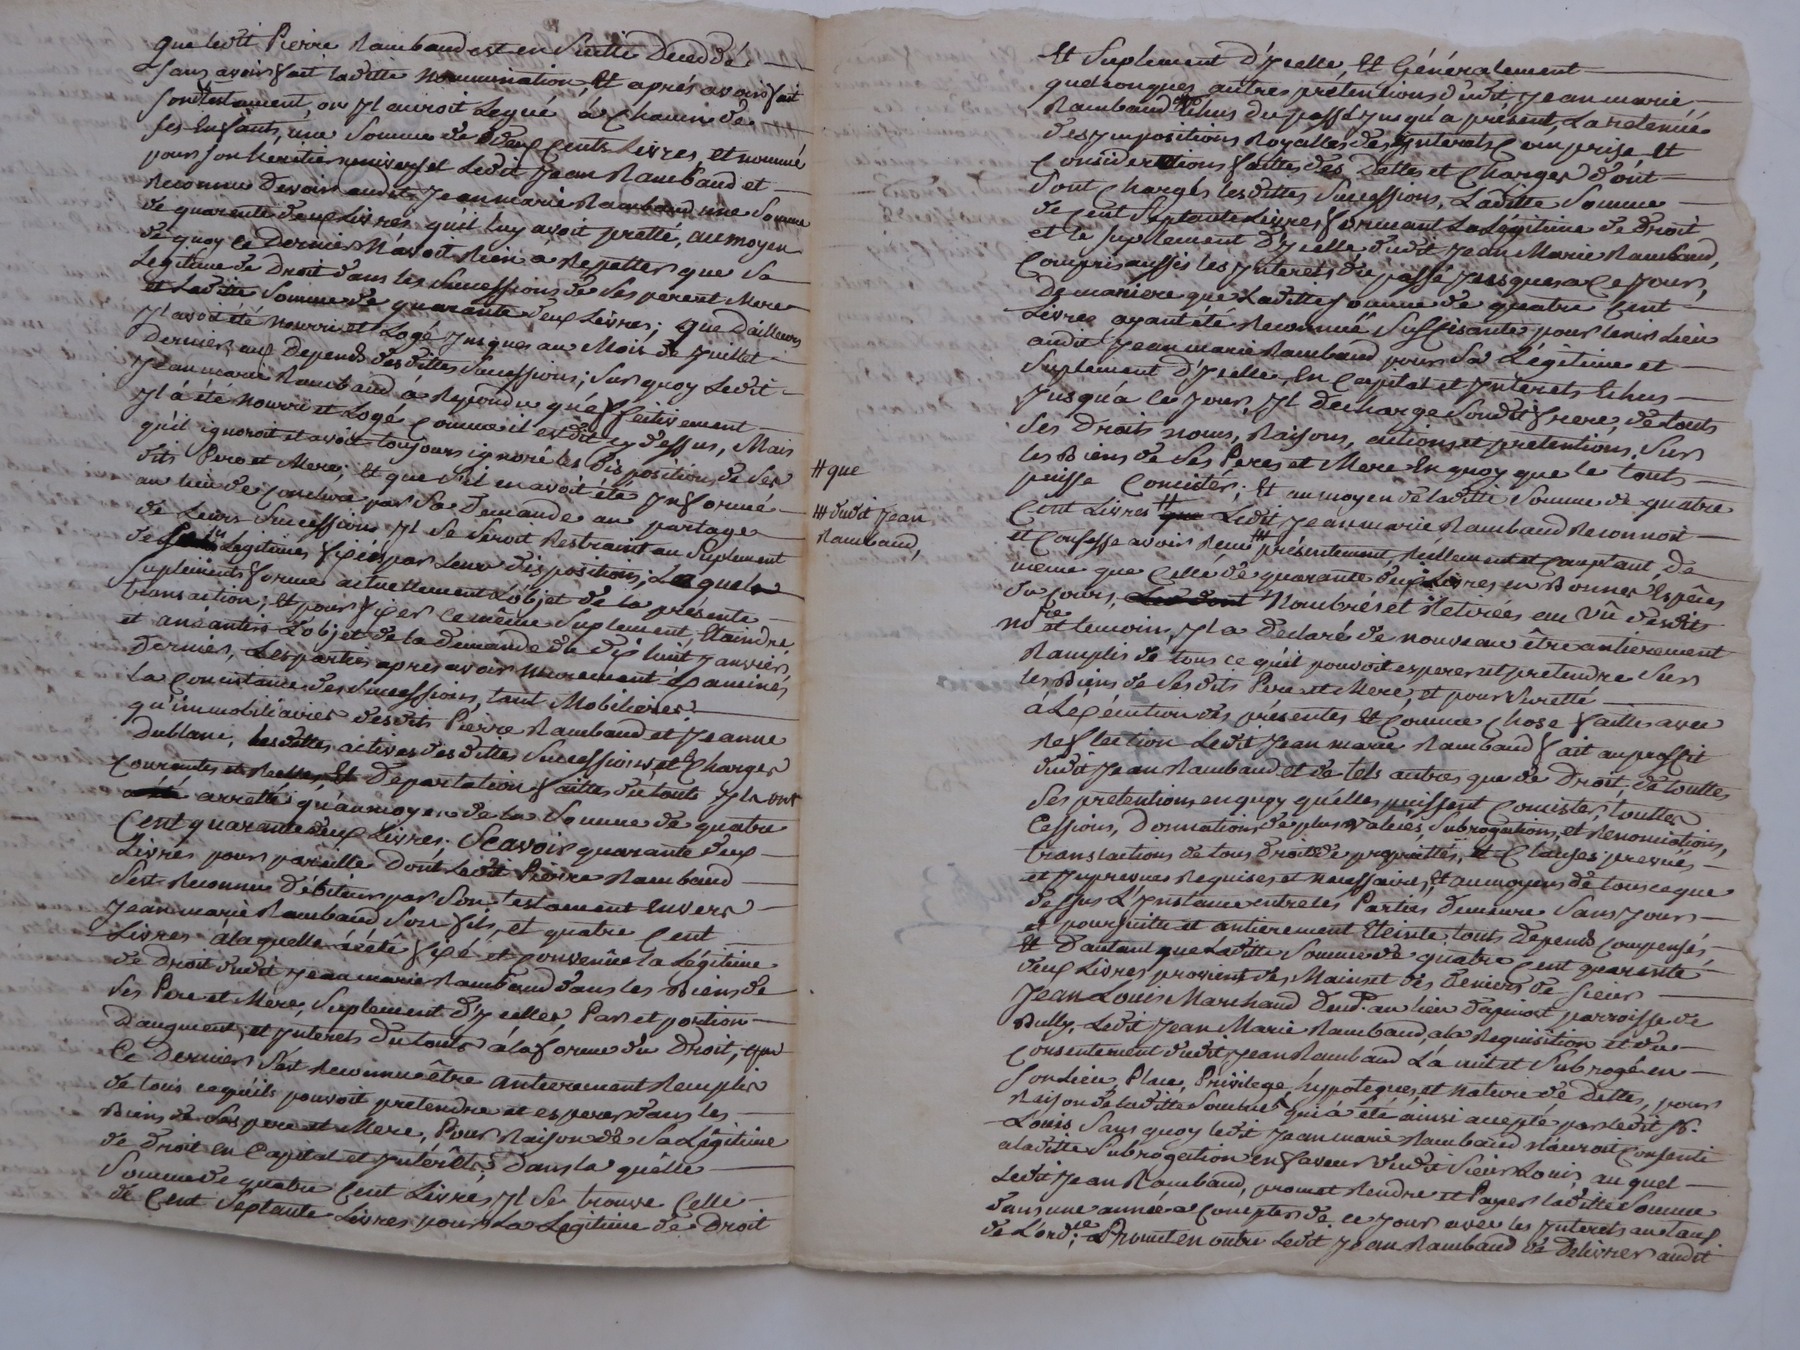 que ledit Pierre Rambaud est en suitte decedé
sans avoir fait laditte nommination, Et aprés avoir fait
son testament, ou Jl auroit Legué à Chacun de
ses Enfants, une Somme de deux cents Livres, et nommé
pour son héritier universel Ledit Jean Rambaud et
Reconnu devoir audit Jean marie Rambaud une Somme
de quarente deux Livres qu'il luy avoit pretté, au moyen
de quoy ce Dernier N'avoit Rien a Repetter que Sa
Legitime de Droit dans les Successions de Ses pere et Mere
et Laditte Somme de quarante deux Livres; que D'ailleurs
Jl avoit été nourri et Logé Jusques au Mois de Juillet
Dernier, aux Depends desdittes Successions; Sur quoy Ledit
Jean marie Rambaud à Repondu qu'éffectivement
Jl à été nourri et Logé Comme il est dit cy dessus, Mais
qu'il ignoroit et avoit toujours ignoré les Dispositions de Ses
dits Pere et Mere; Et que s'il en avoit été Jnformé
au lieu de conclure par Sa Demande au partage
de Leurs Successions Jl Se Seroit Restraint au Suplement
de Legitimes fixées par Leurs dispositions; Lequel
suplement forme actuellement L'objet de la presente
transaction; Et pour fixer ce même Suplement, Etaindre
et anéantir L'objet de la demande du dix huit Janvier
Dernier, Les parties aprés avoir murement Examinés
la Consistance des Successions, tant Mobiliéres
qu'immobiliaires desdits Pierre Rambaud et Jeanne
Dublanc, les dettes actives desdittes Successions et Charges
Courantes et Réelles, Et Deportation faittes du touts Jls ont
arretté qu'au moyen de la Somme de quatre
Cent quarante deux Livres; Scavoir quarante deux
Livres pour pareille dont Ledit Pierre Rambaud
S'est Reconnu débiteur par Son testament Envers
Jean marie Rambaud Son fils, et quatre Cent
Livres a laquelle à été fixé et convenûe la Légitime
de Droit dudit Jean marie Rambaud dans les Biens de
Ses Pere et Mere, Suplement d'Jcelles, Part et portion
D'augment, et Jnterets du touts à la forme du Droit, que
Ce Dernier S'est Reconnu être antierement Remplis
de tous ce qu'ils pouvoit pretendre et esperer dans les
Biens de Ses pere et Mere, Pour Raison de Sa Légitime
de Droit en Capital et Jntérêts; dans la quelle
Somme de quatre Cent Livres, Jl Se trouve Celle
de Cent Septante Livres pour La Legitime de Droit
Et Suplement d'Jcelle, Et Généralement
quelconques autres prétentions dudit Jean marie
Rambaud Echus du passé Jusqu'a présent, La retenüe
des Jmpositions Royalles des Jnterets Comprise Et
Considerations faittes des Dettes et Charges dont
Sont Chargés lesdittes Successions, Laditte Somme
de Cent Septante Livres formant La Légitime de Droit
et le Suplement d'Jcelle dudit Jean Marie Rambaud,
Compris aussis les Jnterets du passé Jusques a Ce Jour,
De maniére que Laditte Somme de quatre Cent
Livres ayant été Reconnuë Suffisante pour tenir Lieu
audit Jean marie Rambaud pour Sa Légitime et
Suplement d'Jcelle, En Capital et Jnterets Echus
Jusqu'à Ce Jour, Jl decharge Sondit frere, de touts
Ses Droits noms, Raisons, actions et pretentions, Sur
les Biens de Ses Peres et Mere En quoy que le tout
puisse Consister; Et au moyen de laditte Somme de quatre
Cent Livres # Ledit Jean marie Rambaud Reconnoit
et Confesse avoir Reçu présentement, Réellement et Comptant, de
même que Celle de quarante deux Livres en Bonnes Espêces
du Cours, Nombrés et Retirées en Vû desdits
nore et temoins, Jl a declaré de nouveau être antierement
Ramplis de tous ce qu'il pouvoit esperer et pretendre Sur
les Biens de Sesdits Pere et Mere, et pour Surette
à L'éxécution des présentes Et Comme Chose faitte avec
Reflection Ledit Jean marie Rambaud fait au proffit
dudit Jean Rambaud et de tels autres que de Droit, de touttes
Ses pretentions en quoy qu'elles puissent Consister, touttes
Cessions, Donnations de plus valües, Subrogations, et Renonciations,
translactions de tous Droits de propriettés, et Clauses prevües
et Jmprevues Requises et necessaires, Et au moyens de tous ce que
dessus L'Jnstance entre les Parties demeure Sans Jour
et poursuitte et antierement Eteinte, touts depends Compensés,
Et D'autant que Laditte Somme de quatre Cent quarente
deux Livres provient des Mains et des Deniers de Sieur
Jean Louis Marchand demt. au lieu d'apinost parroisse de
Bully, Ledit Jean Marie Rambaud, ala Requisition et du
Consentement dudit Jean Rambaud L'a mit et Subrogé en
Son Lieu, Place, Privilege, hypoteques, et Nature de Dettes, pour
Raison de laditte Somme, qui à été ainsi accepté par Ledit Sr.
Louis, Sans quoy ledit Jean marie Rambaud n'auroit Consenti
a laditte Subrogation en faveur dudit Sieur Louis, au quel
Ledit Jean Rambaud, promet Rendre et Payer laditte Somme
dans une année a Compter de ce Jour avec les Jnterets au taux
de L'ordce; Promet en outre Ledit Jean Rambaud de Delivrer audit
# que
# dudit Jean
Rambaud,